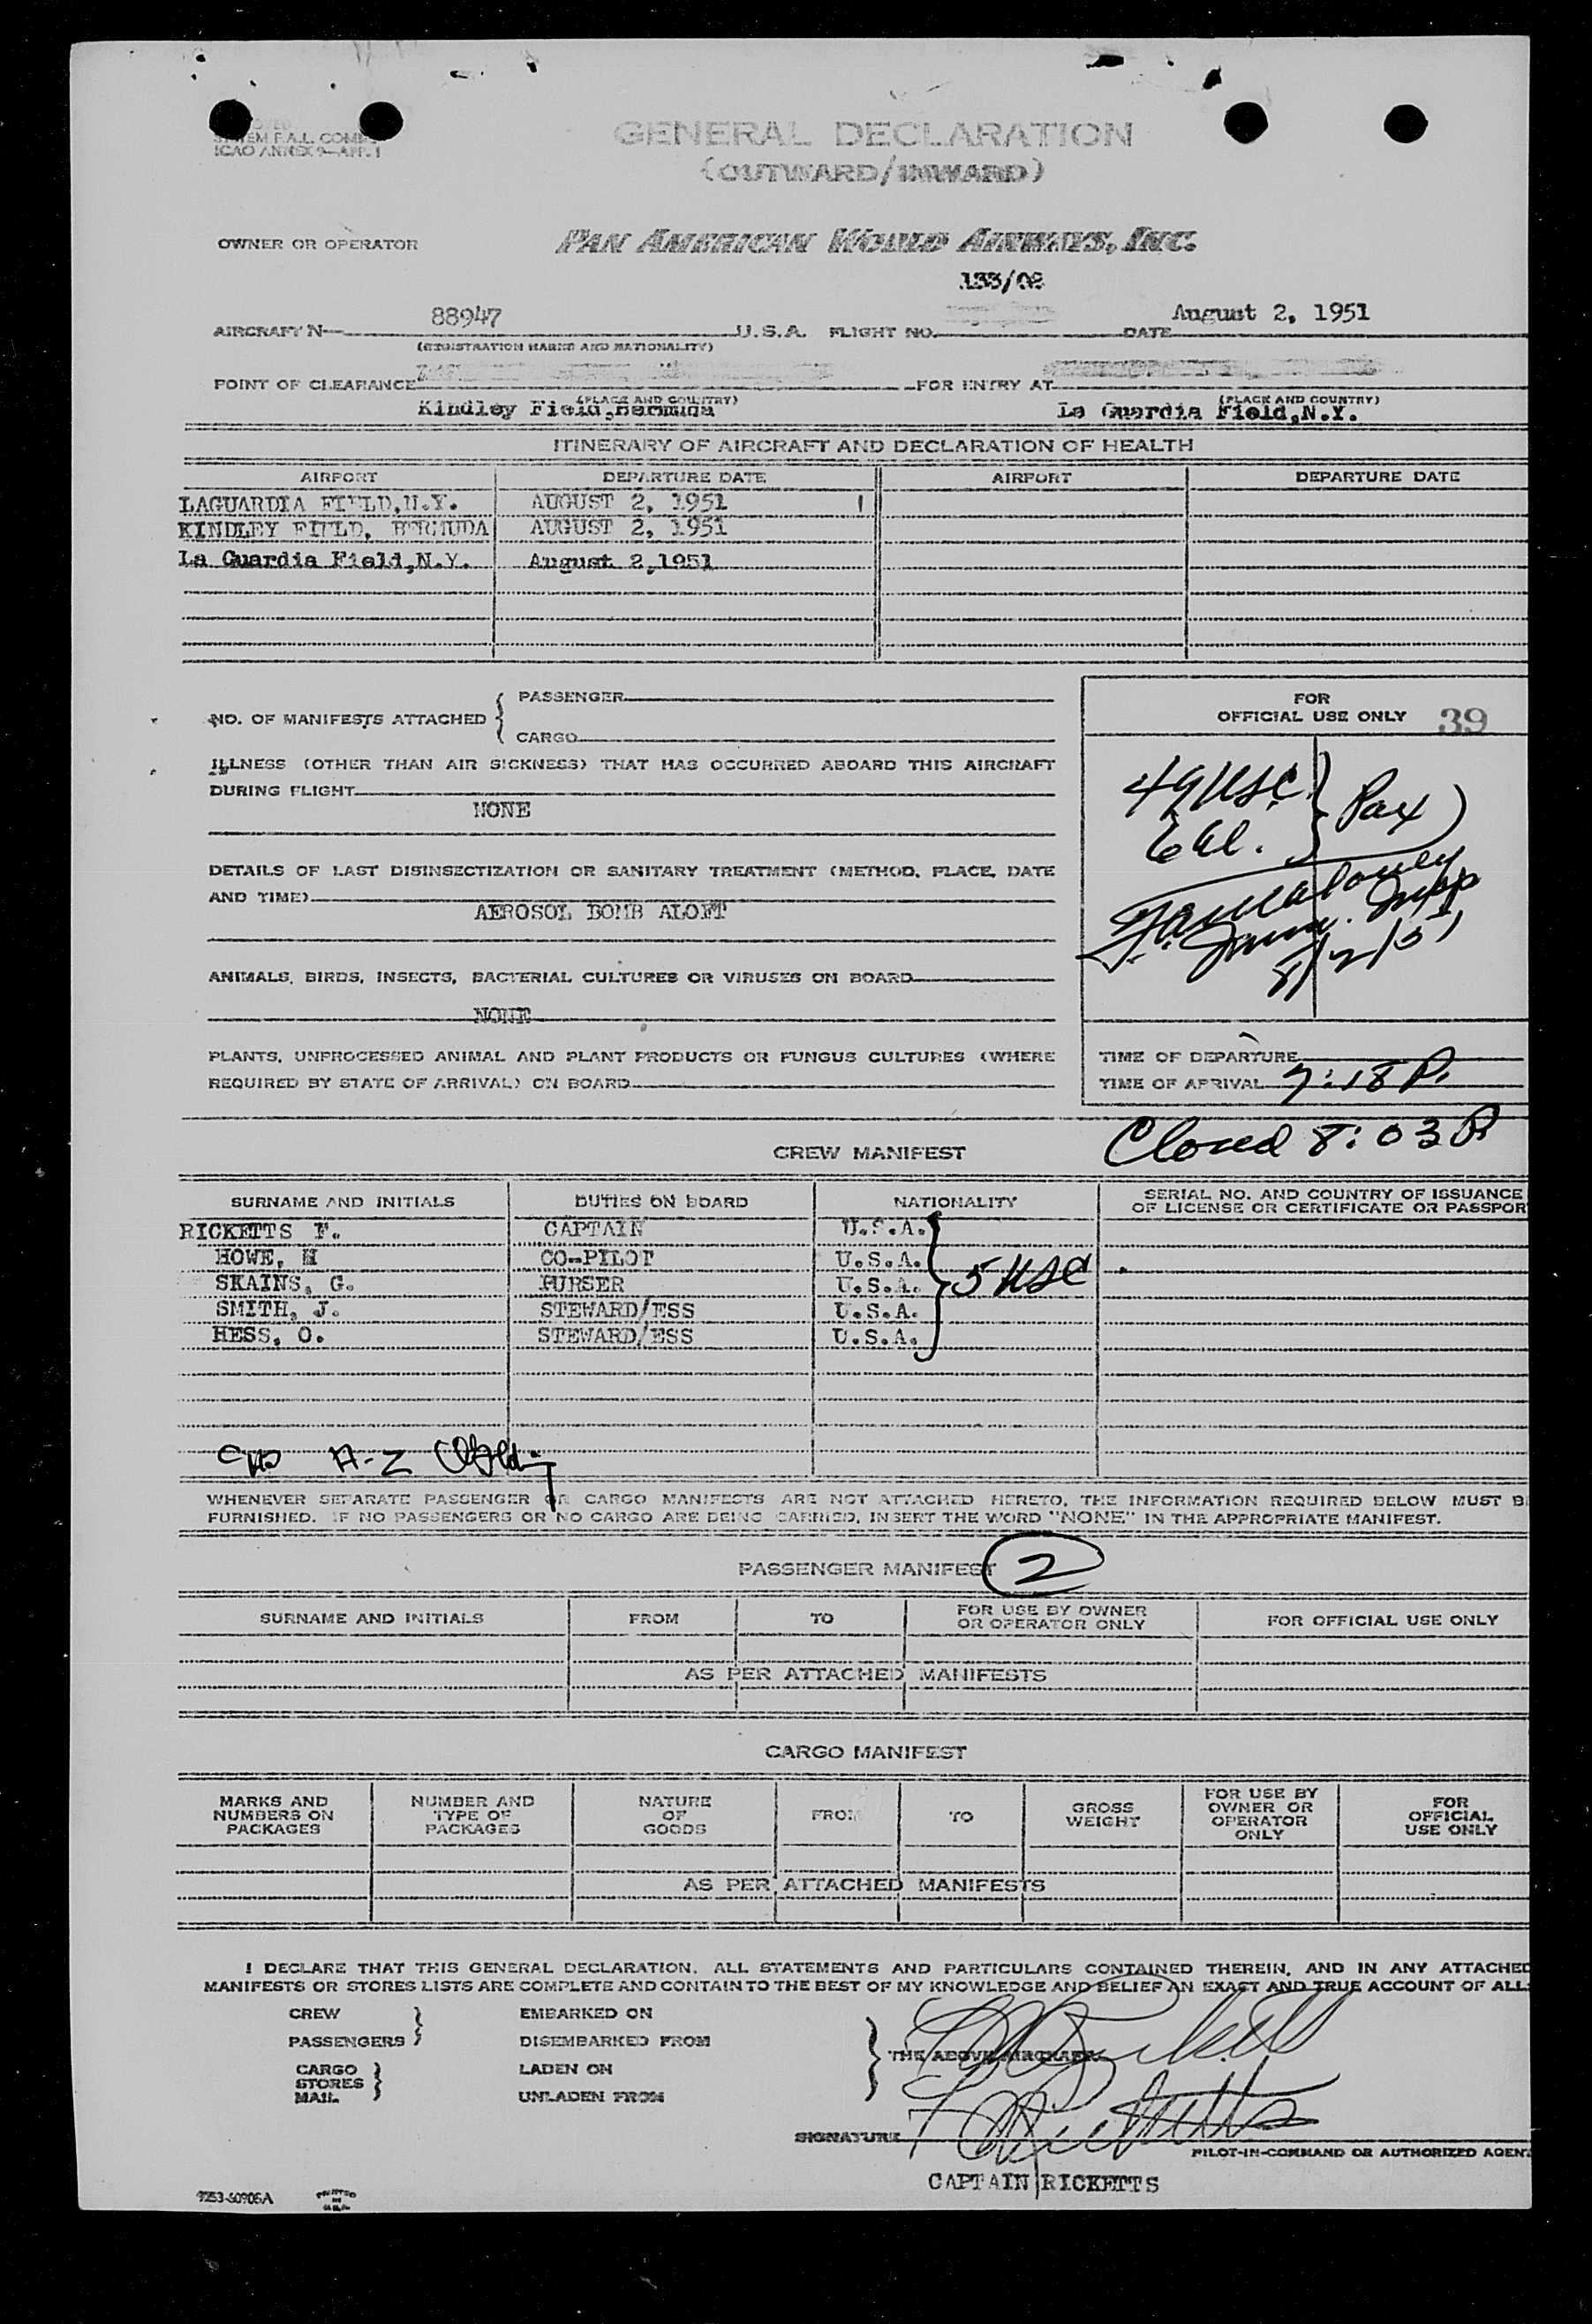 SYSTEM F.A.L. COMM.
ICAO ANNEX 9—APP. 1
GENERAL DECLARATION
(OUTWARD/INWARD)
OWNER OR OPERATOR PAN AMERICAN WORLD AIRWAYS, INC.
133/02
AIRCRAFT N— 88947 U.S.A. FLIGHT NO. DATE August 2, 1951
(REGISTRATION MARKS AND NATIONALITY)
POINT OF CLEARANCE FOR ENTRY AT
(PLACE AND COUNTRY) (PLACE AND COUNTRY)
Kindley Field,Bermuda La Guardia Field,N.Y.
ITINERARY OF AIRCRAFT AND DECLARATION OF HEALTH
AIRPORT DEPARTURE DATE AIRPORT DEPARTURE DATE
LAGUARDIA FIELD,N.Y. AUGUST 2, 1951
KINDLEY FIELD, BERMUDA AUGUST 2, 1951
La Guardia Field,N.Y. August 2,1951
NO. OF MANIFESTS ATTACHED { PASSENGER
CARGO
FOR
OFFICIAL USE ONLY 39
ILLNESS (OTHER THAN AIR SICKNESS) THAT HAS OCCURRED ABOARD THIS AIRCRAFT
DURING FLIGHT
NONE
49 USC } Pax
6 al.
DETAILS OF LAST DISINSECTIZATION OR SANITARY TREATMENT (METHOD, PLACE, DATE
AND TIME)
AEROSOL BOMB ALOFT
Imm. Insp
8/2/51
ANIMALS, BIRDS, INSECTS, BACTERIAL CULTURES OR VIRUSES ON BOARD
NONE
PLANTS, UNPROCESSED ANIMAL AND PLANT PRODUCTS OR FUNGUS CULTURES (WHERE
REQUIRED BY STATE OF ARRIVAL) ON BOARD
TIME OF DEPARTURE
TIME OF ARRIVAL 7:18 P.
Closed 8:03 P
CREW MANIFEST
SURNAME AND INITIALS DUTIES ON BOARD NATIONALITY SERIAL NO. AND COUNTRY OF ISSUANCE
OF LICENSE OR CERTIFICATE OR PASSPOR
RICKETTS F. CAPTAIN U.S.A.
HOWE, H CO-PILOT U.S.A.
SKAINS, G. PURSER U.S.A. } 5 USC
SMITH, J. STEWARD/ESS U.S.A.
HESS, O. STEWARD/ESS U.S.A.
A-Z
WHENEVER SEPARATE PASSENGER OR CARGO MANIFESTS ARE NOT ATTACHED HERETO, THE INFORMATION REQUIRED BELOW MUST B
FURNISHED. IF NO PASSENGERS OR NO CARGO ARE BEING CARRIED, INSERT THE WORD "NONE" IN THE APPROPRIATE MANIFEST.
PASSENGER MANIFEST 2
SURNAME AND INITIALS FROM TO FOR USE BY OWNER
OR OPERATOR ONLY FOR OFFICIAL USE ONLY
AS PER ATTACHED MANIFESTS
CARGO MANIFEST
MARKS AND
NUMBERS ON
PACKAGES
NUMBER AND
TYPE OF
PACKAGES
NATURE
OF
GOODS
FROM
TO
GROSS
WEIGHT
FOR USE BY
OWNER OR
OPERATOR
ONLY
FOR
OFFICIAL
USE ONLY
AS PER ATTACHED MANIFESTS
I DECLARE THAT THIS GENERAL DECLARATION, ALL STATEMENTS AND PARTICULARS CONTAINED THEREIN, AND IN ANY ATTACHED
MANIFESTS OR STORES LISTS ARE COMPLETE AND CONTAIN TO THE BEST OF MY KNOWLEDGE AND BELIEF AN EXACT AND TRUE ACCOUNT OF ALL:
CREW } EMBARKED ON
PASSENGERS DISEMBARKED FROM
THE ABOVE AIRCRAFT.
CARGO } LADEN ON
STORES
MAIL UNLADEN FROM
F Ricketts
SIGNATURE
PILOT-IN-COMMAND OR AUTHORIZED AGENT
CAPTAIN RICKETTS
9253-60906A PRINTED
IN
U.S.A.